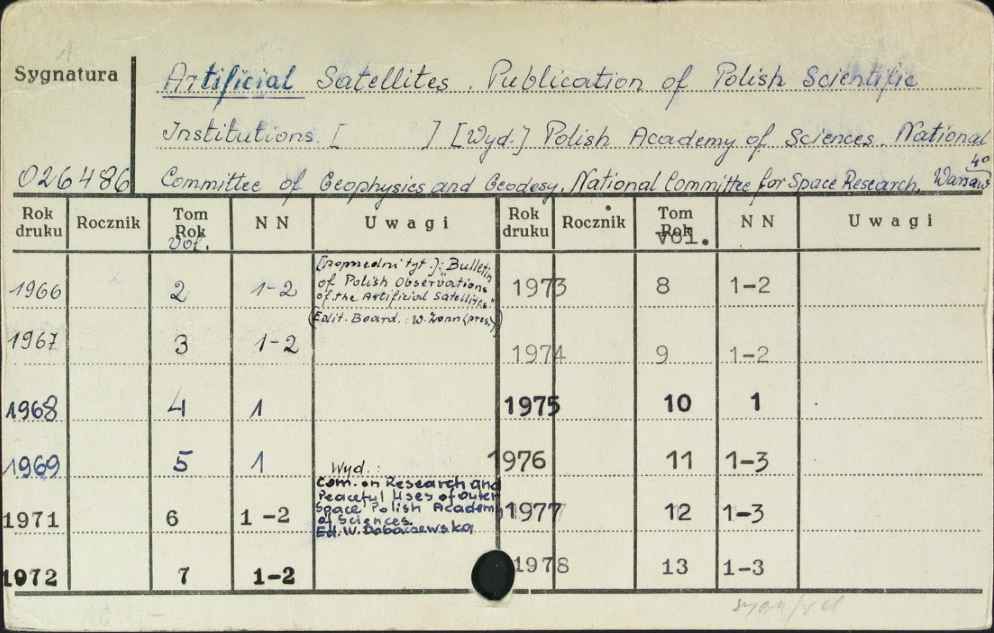 Sygnatura
Artificial Satellites. Publication of Polish Scientific
Institutions. [ ] [Wyd.] Polish Academy of Sciences. National
026486 Committee of Geophysics and Geodesy, National Committee for Space Research. Warsaw 4°
Rok druku Rocznik Tom Rok Vol. NN Uwagi Rok druku Rocznik Tom Rok Vol. NN Uwagi
1966 2 1-2 1973 8 1-2
[poprzedni tyt.]: "Bulletin
of Polish Observations
of the Artificial Satellites"
(Edit. Board: W. Zonn (pres.))
1967 3 1-2 1974 9 1-2
1968 4 1 1975 10 1
1969 5 1 1976 11 1-3
Wyd.:
Com. on Research and
Peaceful Uses of Outer
Space Polish Academy
of Sciences.
Ed. W. Dobaczewska
1971 6 1-2 1977 12 1-3
1972 7 1-2 1978 13 1-3